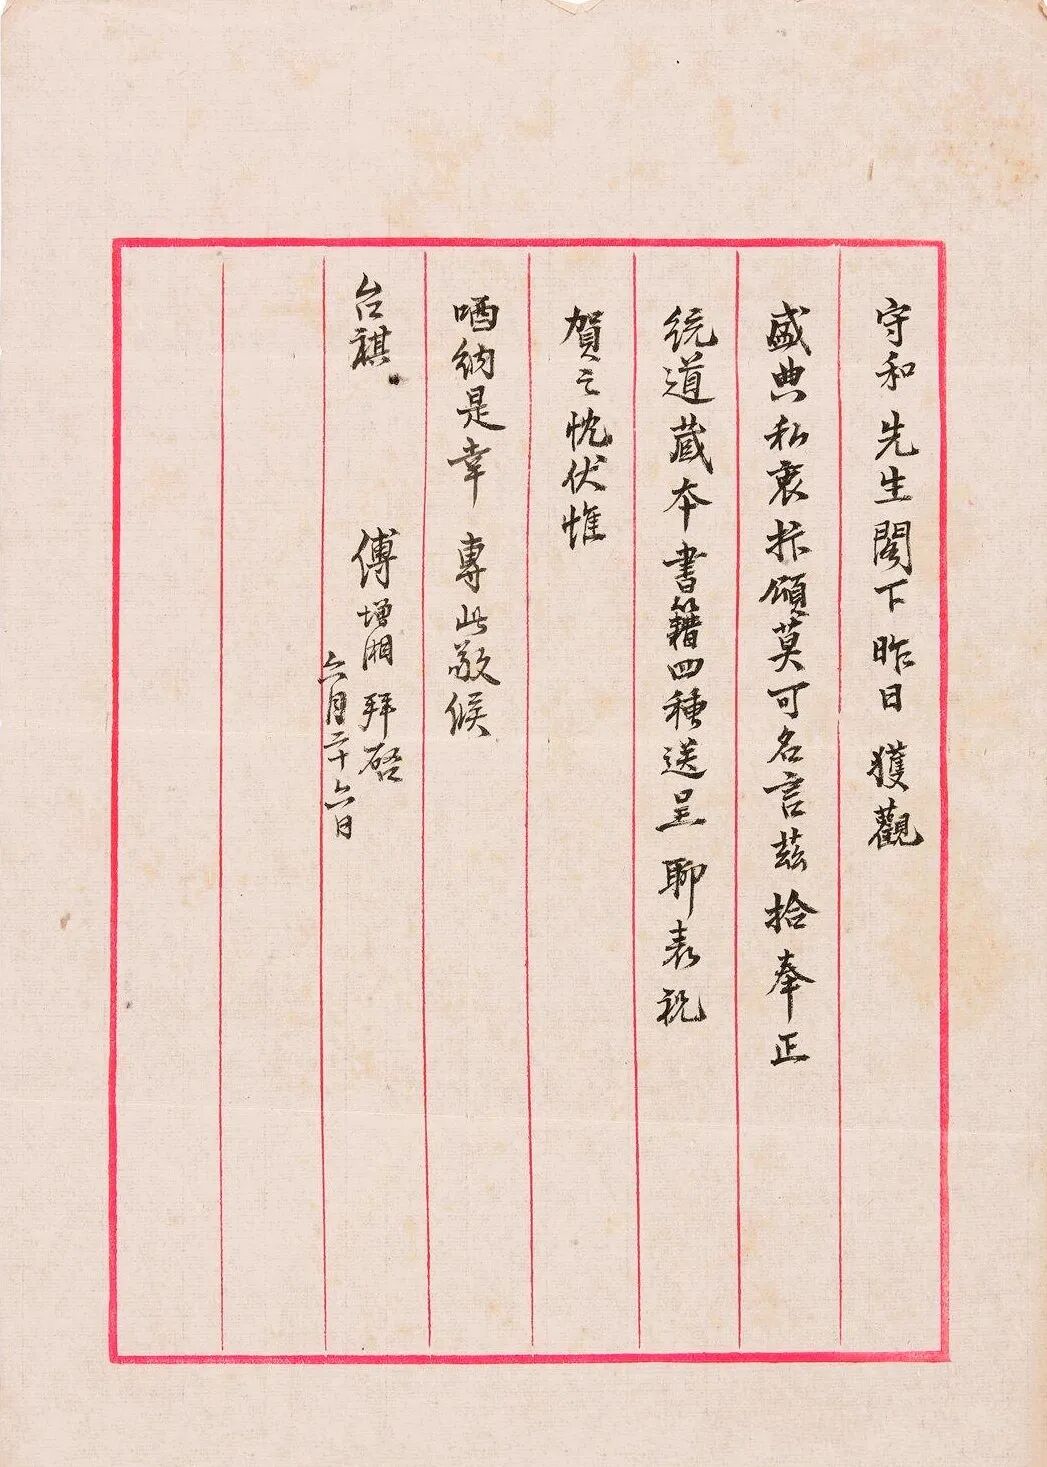 守和先生閣下昨日獲觀
盛典私衷抃頌莫可名言茲拾奉正
統道藏本書籍四種送呈聊表祝
賀之忱伏惟
哂納是幸專此敬候
台祺
傅增湘拜啓
六月二十六日